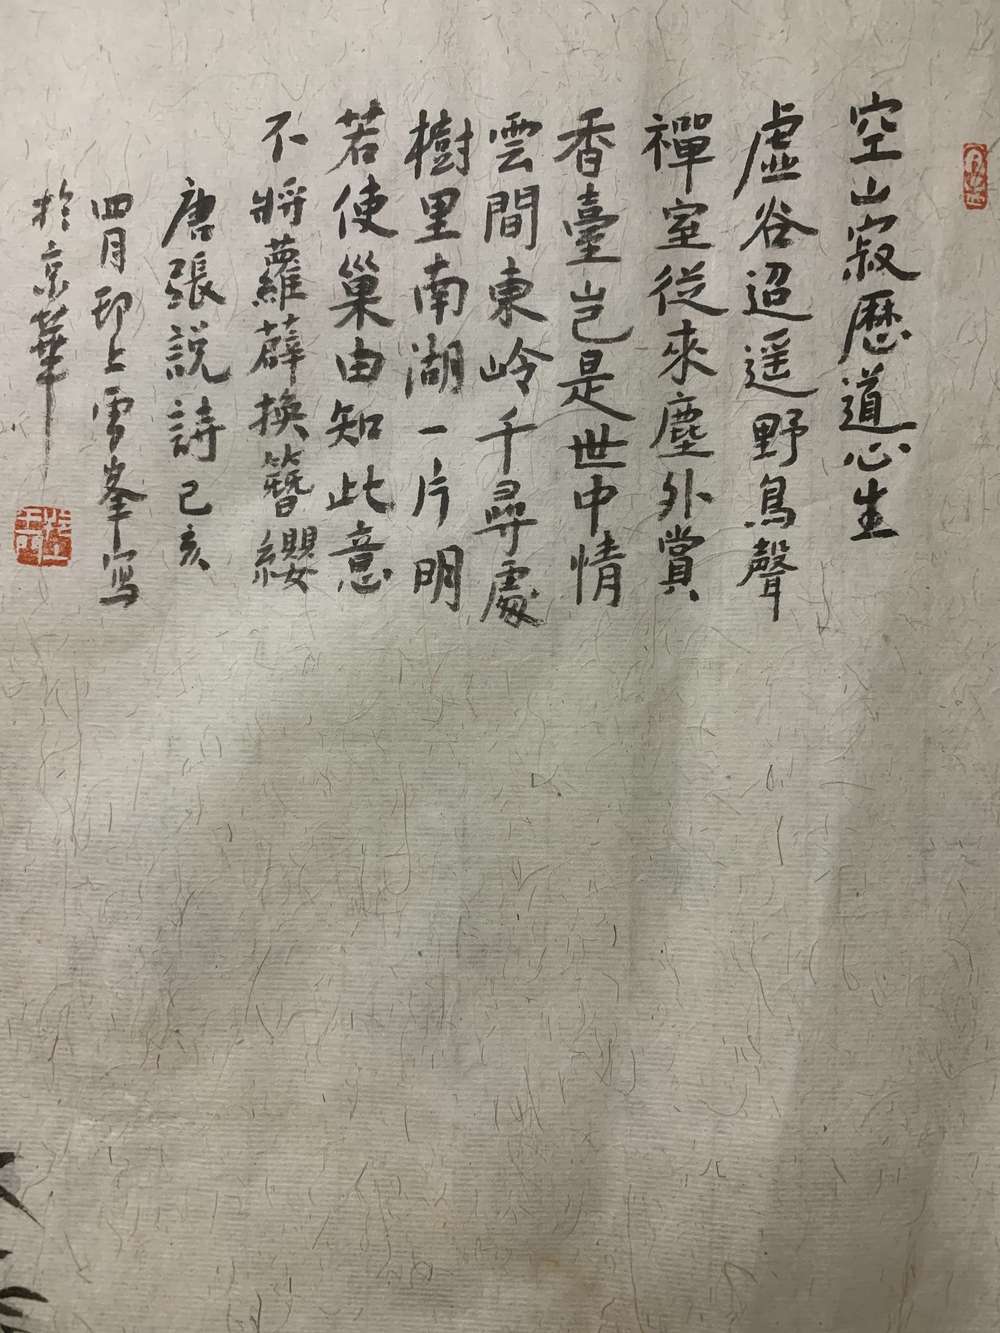 空山寂歷道心生
虛谷迢遥野鳥聲
禪室從來塵外賞
香臺豈是世中情
雲間東岭千尋處
樹里南湖一片明
若使巢由知此意
不將蘿薜換簪纓
唐張説詩己亥
四月邵上雪峯写
於京華